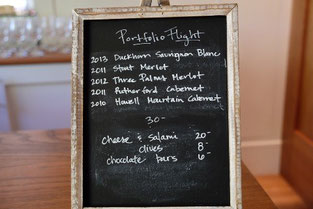 Portfolio Flight
2013 Duckhorn Sauvignon Blanc
2011 Stout Merlot
2012 Three Palms Merlot
2011 Rutherford Cabernet
2010 Howell Mountain Cabernet
30-
cheese & salami 20-
olives 8-
chocolate bars 6-